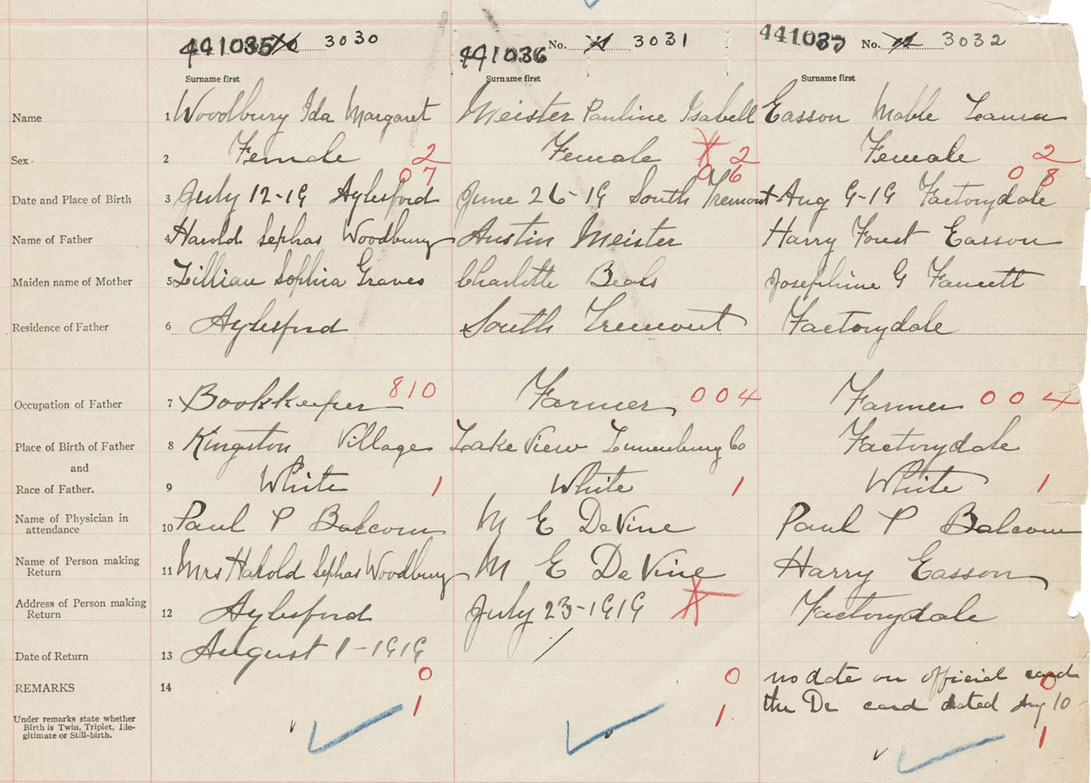 441035 3030 441036 No. 3031 441037 No. 3032
Surname first Surname first Surname first
Name 1 Woodbury Ida Margaret Meister Pauline Isabell Easson Mable Leama
Sex 2 Female 2 Female 2 Female 2
07 06 08
Date and Place of Birth 3 July 12-19 Aylesford June 26-19 South Tremont Aug 9-19 Factorydale
Name of Father 4 Harold Sephas Woodbury Austin Meister Harry Forest Easson
Maiden name of Mother 5 Lillian Sophia Graves Charlotte Beals Josephine G Fawcett
Residence of Father 6 Aylesford South Tremont Factorydale
Occupation of Father 7 Bookkeeper 810 Farmer 004 Farmer 004
Place of Birth of Father 8 Kingston Village Lake View Lunenburg Co Factorydale
and
Race of Father. 9 White 1 White 1 White 1
Name of Physician in
attendance 10 Paul P Balcom M E DeVine Paul P Balcom
Name of Person making
Return 11 Mrs Harold Sephas Woodbury M E DeVine Harry Easson
Address of Person making
Return 12 Aylesford July 23-1919 Factorydale
Date of Return 13 August 1-1919
REMARKS 14 0 0 no date on official card 0
Under remarks state whether
Birth is Twin, Triplet, Ille-
gitimate or Still-birth.
1 1 the Dr card dated Aug 10-
1